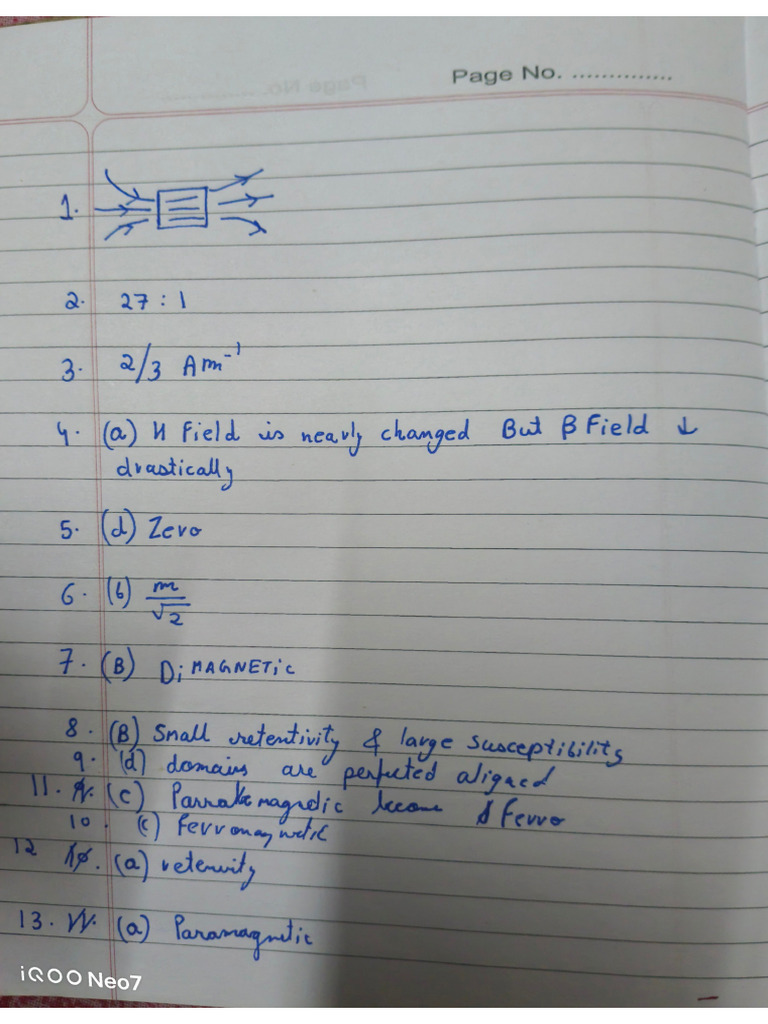 Page No. ..............
1.
2. 27 : 1
3. 2/3 Am⁻¹
4. (a) H Field is nearly changed But B Field ↓
drastically
5. (d) Zero
6. (b) m/√2
7. (B) DiMAGNETiC
8. (B) Small retentivity & large susceptibility
9. (d) domains are perfected aligned
11. (c) magnetic become Ferro
10. (c) ferromagnetic
12 (a) retenvity
13. (a) Paramagnetic
iQOO Neo7